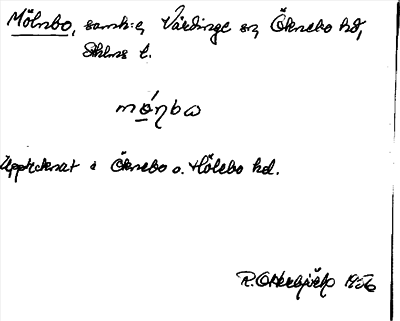 Mölnbo, samh:e, Vårdinge sn, Öknebo hd,
Sthlms l.
mó̲ŋbω
Upptecknat i Öknebo o. Hölebo hd.
R. Otterbjörk 1956